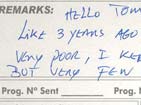 REMARKS: HELLO TOM
LIKE 3 YEARS AGO
VERY POOR, I KE
BUT VERY FEW
Prog. Nº Sent Prog. N